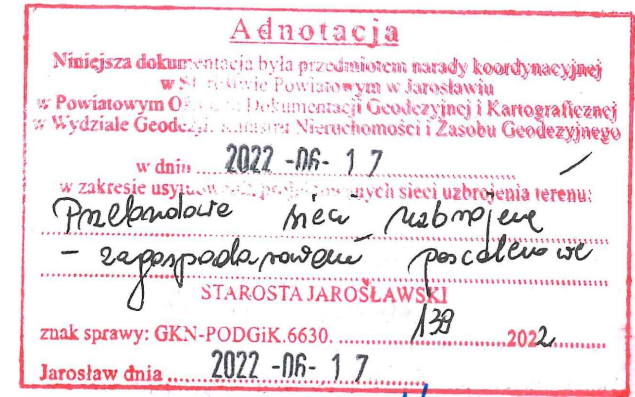 Adnotacja
Niniejsza dokumentacja była przedmiotem narady koordynacyjnej
w Starostwie Powiatowym w Jarosławiu
w Powiatowym Ośrodku Dokumentacji Geodezyjnej i Kartograficznej
w Wydziale Geodezji, Katastru Nieruchomości i Zasobu Geodezyjnego
w dniu 2022 -06- 17
w zakresie usytuowania projektowanych sieci uzbrojenia terenu:
sieci
- zagospodarowanie poscaleniowe
STAROSTA JAROSŁAWSKI
znak sprawy: GKN-PODGiK.6630. 139 2022
Jarosław dnia 2022 -06- 17